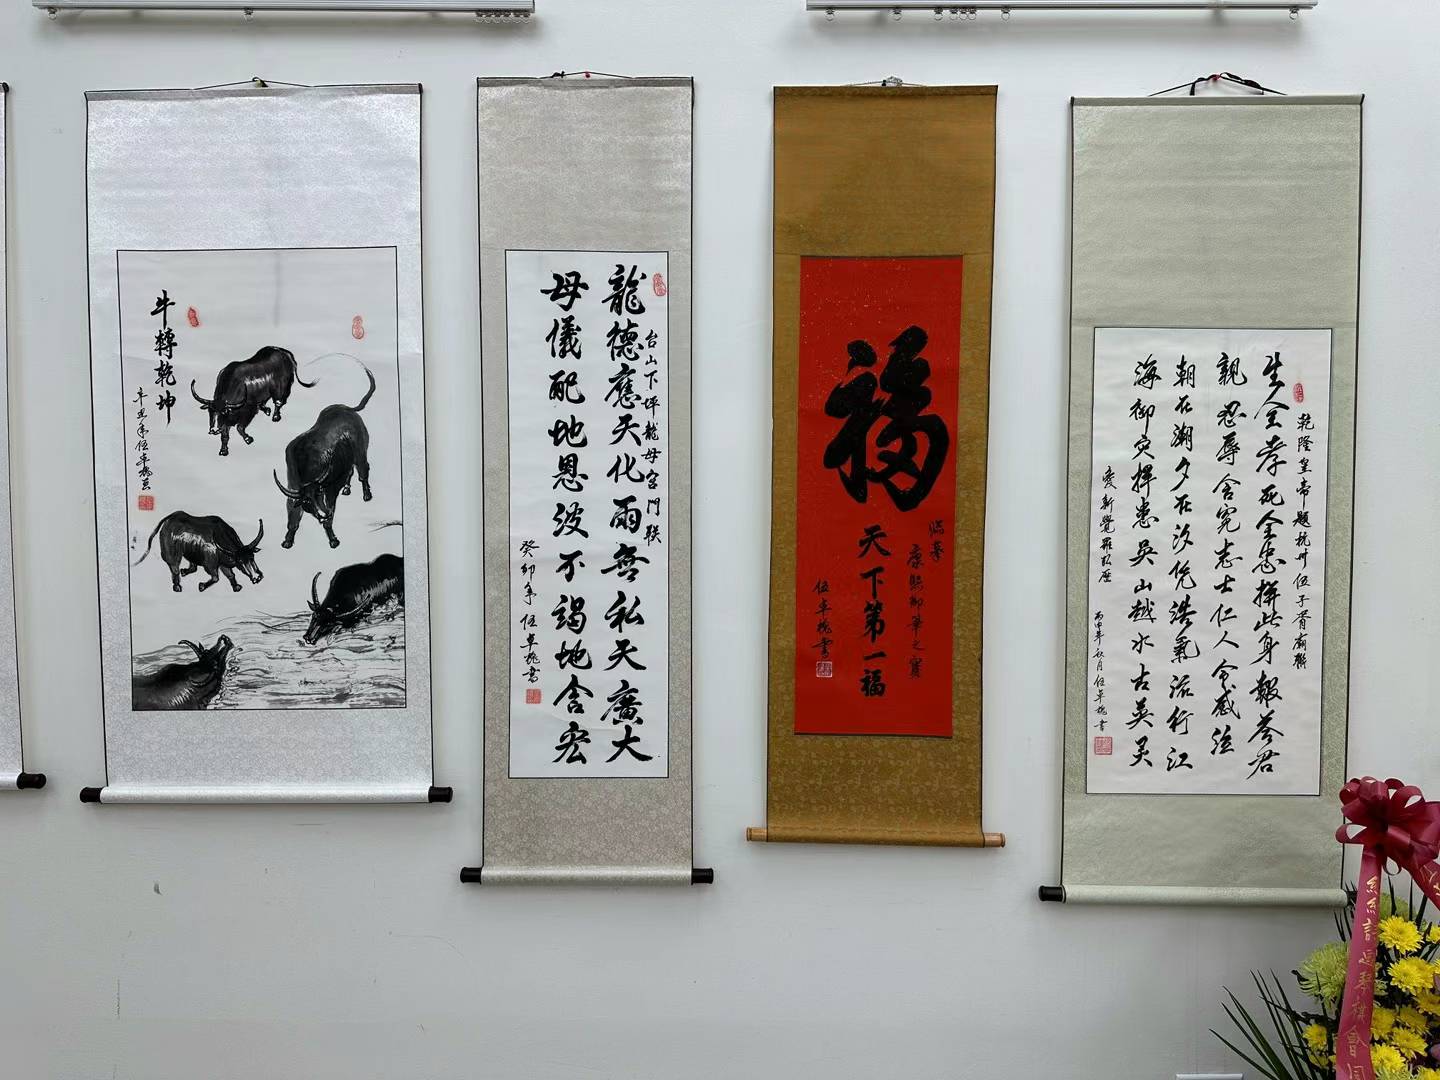 牛轉乾坤
辛丑年伍卓槐画
台山下坪龍母宮門联
龍德應天化雨無私天廣大
母儀配地恩波不竭地含宏
癸卯年 伍卓槐書
福
天下第一福
临摹
康熙御筆之寶
伍卓槐書
乾隆皇帝題杭州伍子胥廟聯
生全孝死全忠拼此身報答君
親忍辱含冤志士仁人今感泣
朝在潮夕在汐凭浩氣流行江
海御灾捍患吳山越水古英灵
愛新覺羅弘歷
丙申年秋月伍卓槐書
詩画琴棋會